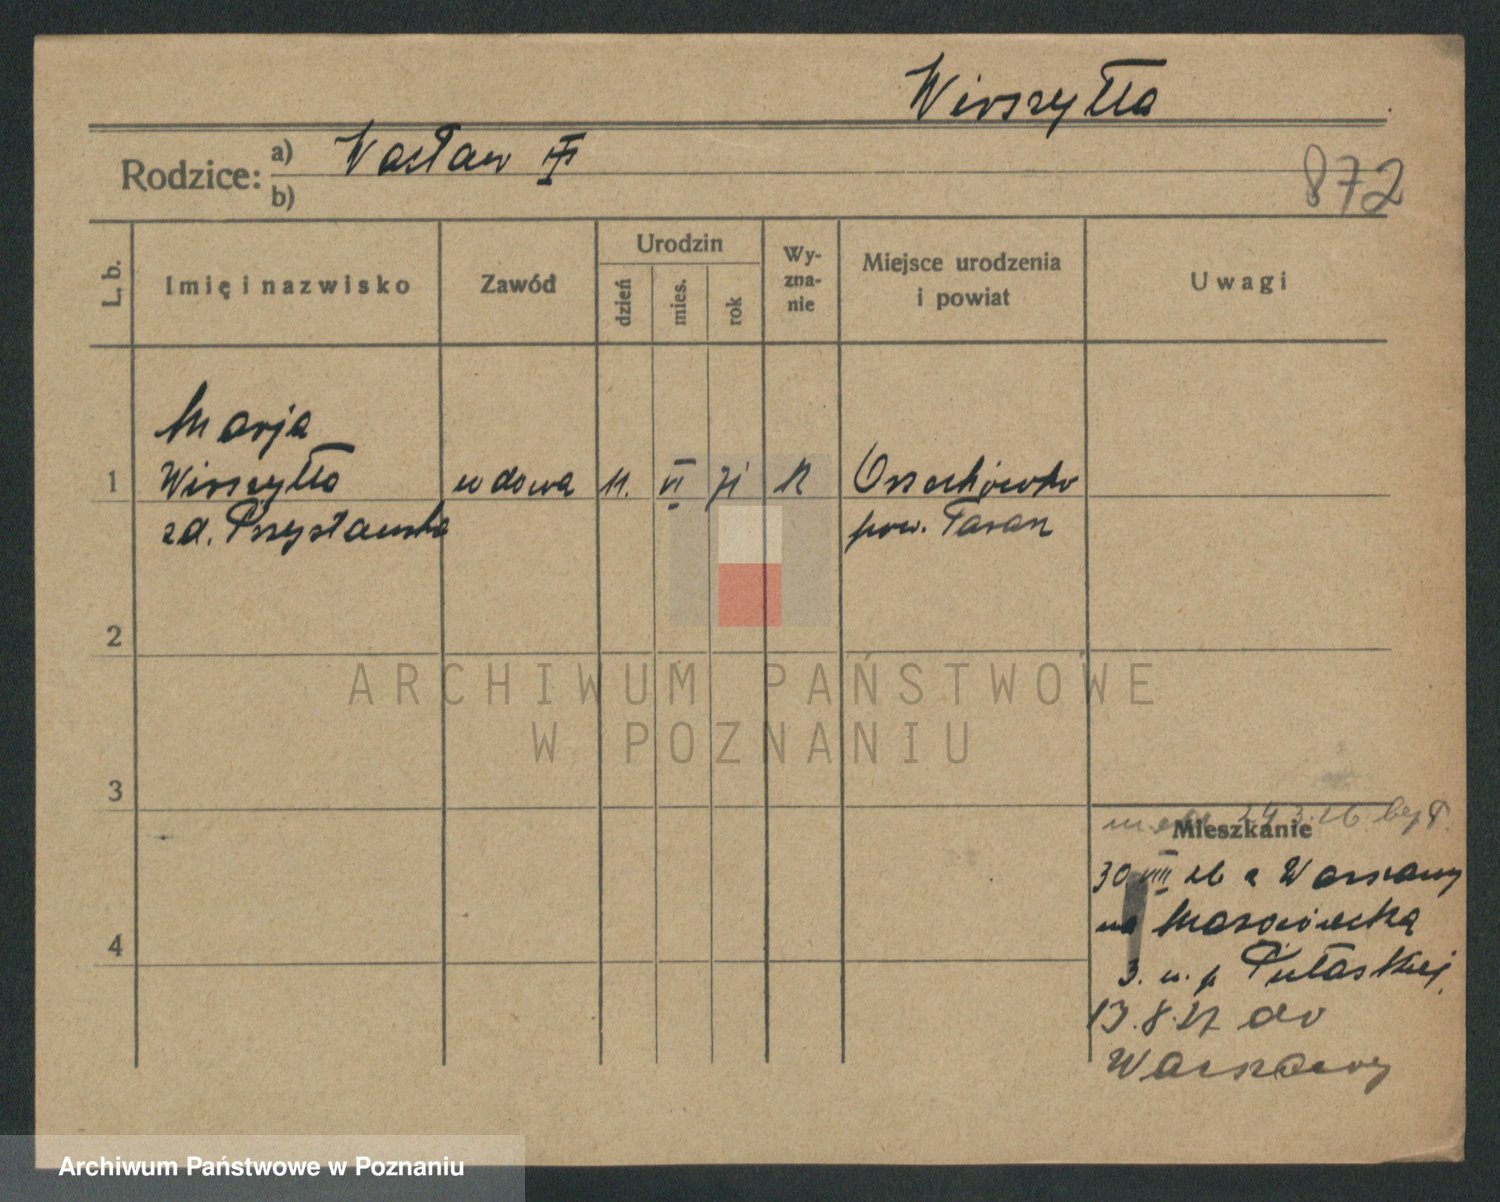 Wirszyłło
Rodzice: a) Wacław III
b)
872
L. b.
Imię i nazwisko
Zawód
Urodzin
dzień
mies.
rok
Wy-
zna-
nie
Miejsce urodzenia
i powiat
Uwagi
Marja
1 Wirszyłło wdowa 11. VI 71 R
zd. Przystawska pow.
2
3
4
ARCHIWUM PAŃSTWOWE
W POZNANIU
24 3.26
Mieszkanie
30 VIII 26 z Warszawy
na Mazowiecką
3. u. p Pułaskiej
13.8.27 do
Warszawy
Archiwum Państwowe w Poznaniu